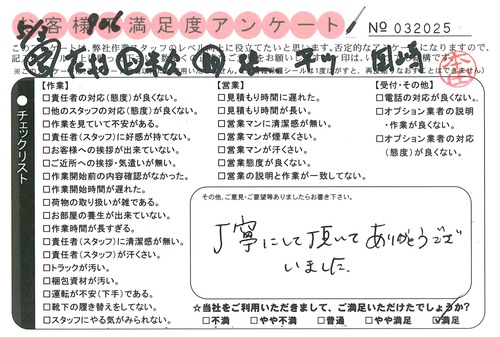 お客様不満足度アンケート
No 032025
このアンケートは、弊社作業スタッフのレベル向上に役立てたいと思います。否定的なアンケートになりますので、
チェックリスト
【作業】
□責任者の対応(態度)が良くない。
□他のスタッフの対応(態度)が良くない。
□作業を見ていて不安がある。
□責任者(スタッフ)に好感が持てない。
□お客様への挨拶が出来ていない。
□ご近所への挨拶・気遣いが無い。
□作業開始前の内容確認がなかった。
□作業開始時間が遅れた。
□荷物の取り扱いが雑である。
□お部屋の養生が出来ていない。
□作業時間が長すぎる。
□責任者(スタッフ)に清潔感が無い。
□責任者(スタッフ)が汗くさい。
□トラックが汚い。
□梱包資材が汚い。
□運転が不安(下手)である。
□靴下の履き替えをしてない。
□スタッフにやる気がみられない。
【営業】
□見積もり時間に遅れた。
□見積もり時間が長い。
□営業マンに清潔感が無い。
□営業マンが煙草くさい。
□営業マンが汗くさい。
□営業態度が良くない。
□営業の説明と作業が一致してない。
【受付・その他】
□電話の対応が良くない。
□オプション業者の説明
・作業が良くない。
□オプション業者の対応
(態度)が良くない。
その他、ご意見・ご要望等ありましたらお書き下さい。
丁寧にして頂いてありがとうござ
いました。
☆当社をご利用いただきまして、ご満足いただけたでしょうか?
□不満 □やや不満 □普通 □やや満足 ☑満足